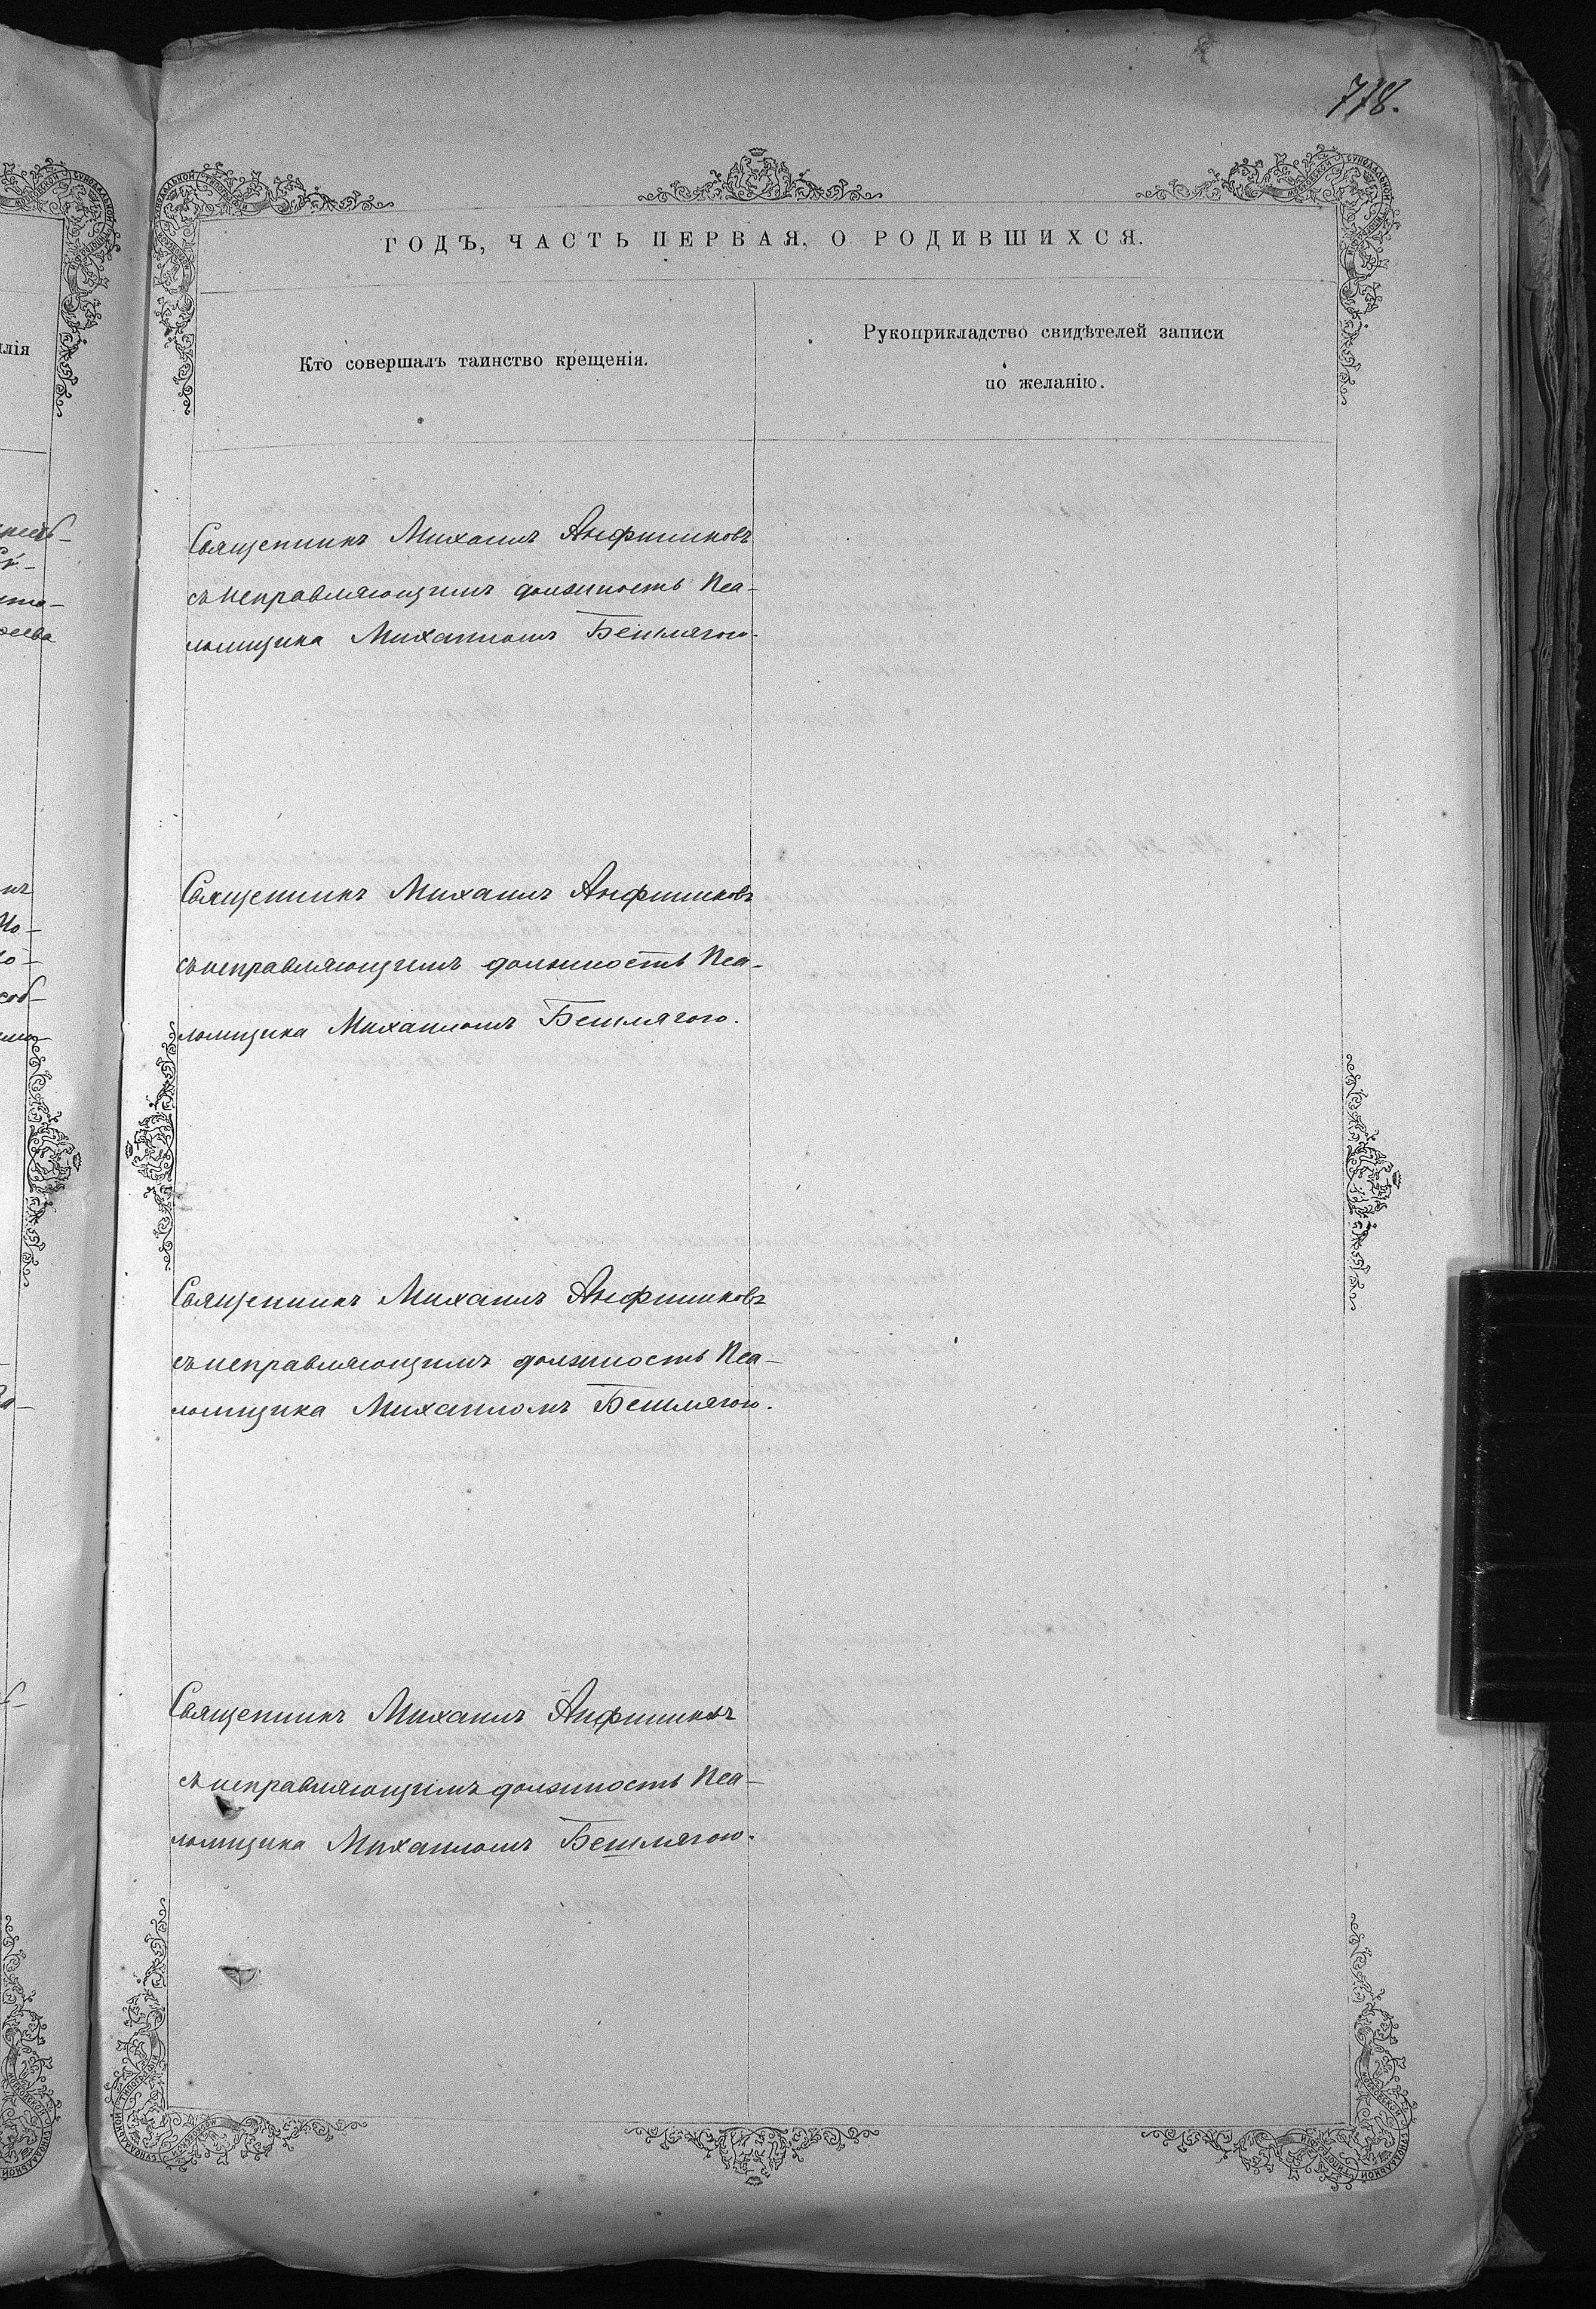 778.
ГОДЪ, ЧАСТЬ ПЕРВАЯ, О РОДИВШИХСЯ.
Кто совершалъ таинство крещенія.
Рукоприкладство свидѣтелей записи
по желанію.
Священникъ Михаилъ Анфиминовъ
съ исправляющимъ должность Пса-
ломщика Михаиломъ Бешлягою.
Священникъ Михаилъ Анфиминовъ
съ исправляющимъ должность Пса-
ломщика Михаиломъ Бешлягою.
Священникъ Михаилъ Анфиминовъ
съ исправляющимъ должность Пса-
ломщика Михаиломъ Бешлягою.
Священникъ Михаилъ Анфиминовъ
съ исправляющимъ должность Пса-
ломщика Михаиломъ Бешлягою.